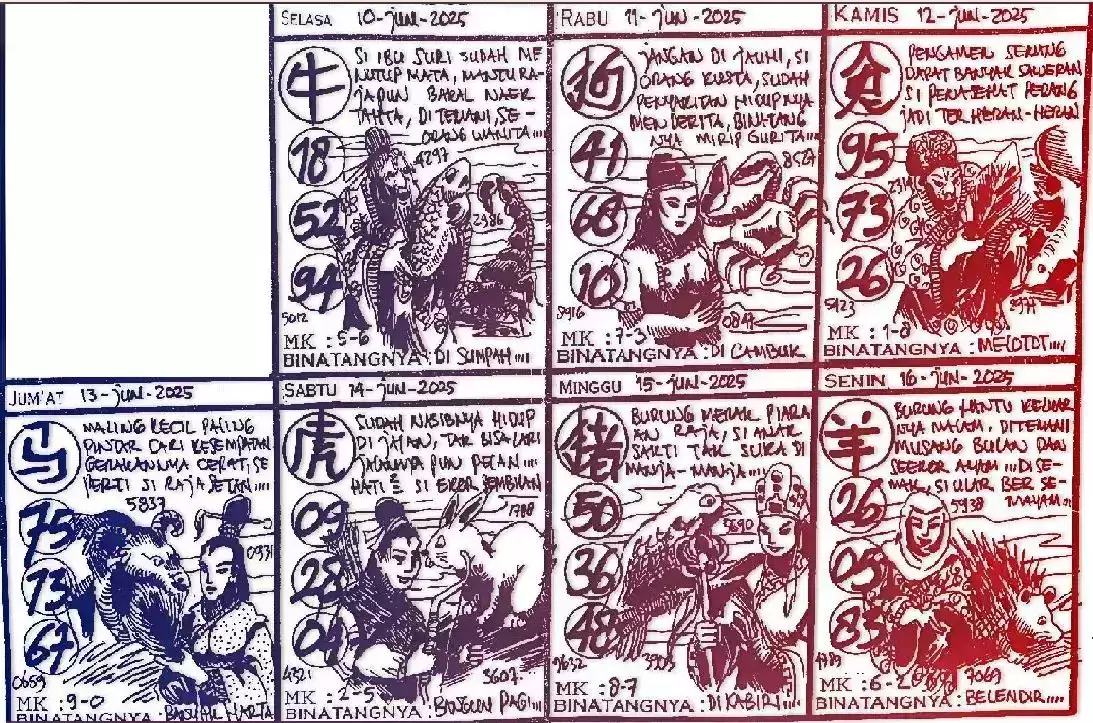 SELASA 10-JUN-2025
牛
SI IBU SURI SUDAH ME
NUTUP MATA, MANTU RA-
JAPUN BAKAL NAEK
TAHTA, DITEMANI, SE-
ORANG WANITA....
18
4297
52
2386
94
5012
MK : 5-6
BINATANGNYA : DI SUMPAH....
RABU 11-JUN-2025
狗
JANGAN DI JAUHI, SI
ORANG KUSTA, SUDAH
PENYAKITAN HIDUPNYA
MENDERITA, BINATANG
NYA MIRIP GURITA....
41
8527
68
10
8916
0847
MK : 7-3
BINATANGNYA : DI CAMBUK
KAMIS 12-JUN-2025
PENGAMEN SENANG
DAPAT BANYAK SAWERAN
SI PENASEHAT PERANG
JADI TER HERAN-HERAN
95
73
26
5423
MK : 1-8
BINATANGNYA : MELOTOT....
JUM'AT 13-JUN-2025
马
MALING KECIL PALING
PINTAR CARI KESEMPATAN
GERAKANNYA CEPAT, SE
PERTI SI RAJA SETAN....
5837
75
0931
73
67
MK : 9-0
BINATANGNYA : HARTA
SABTU 14-JUN-2025
虎
SUDAH NASIBNYA HIDUP
DI JALAN, TAK BISA LARI
JALANNYA PUN PELAN....
HATI² SI EKOR SEMBILAN
09
1788
28
04
4321
5607
MK : 2-5
BINATANGNYA : BANGUN PAGI....
MINGGU 15-JUN-2025
猪
BURUNG MERAK PIARA
AN RAJA, SI ANAK
SAKTI TAK SUKA DI
MANJA-MANJA....
50
5690
36
48
9632
MK : 8-7
BINATANGNYA : DI KABIRI....
SENIN 16-JUN-2025
羊
BURUNG HANTU KELUAR
NYA MALAM, DITEMANI
MUSANG BULAN DAN
SEEKOR AYAM .... DI SE-
MAK, SI ULAR BER SE-
MAYAM...
26
5938
05
83
7069
MK : 6-2
BINATANGNYA : BELENDIR....